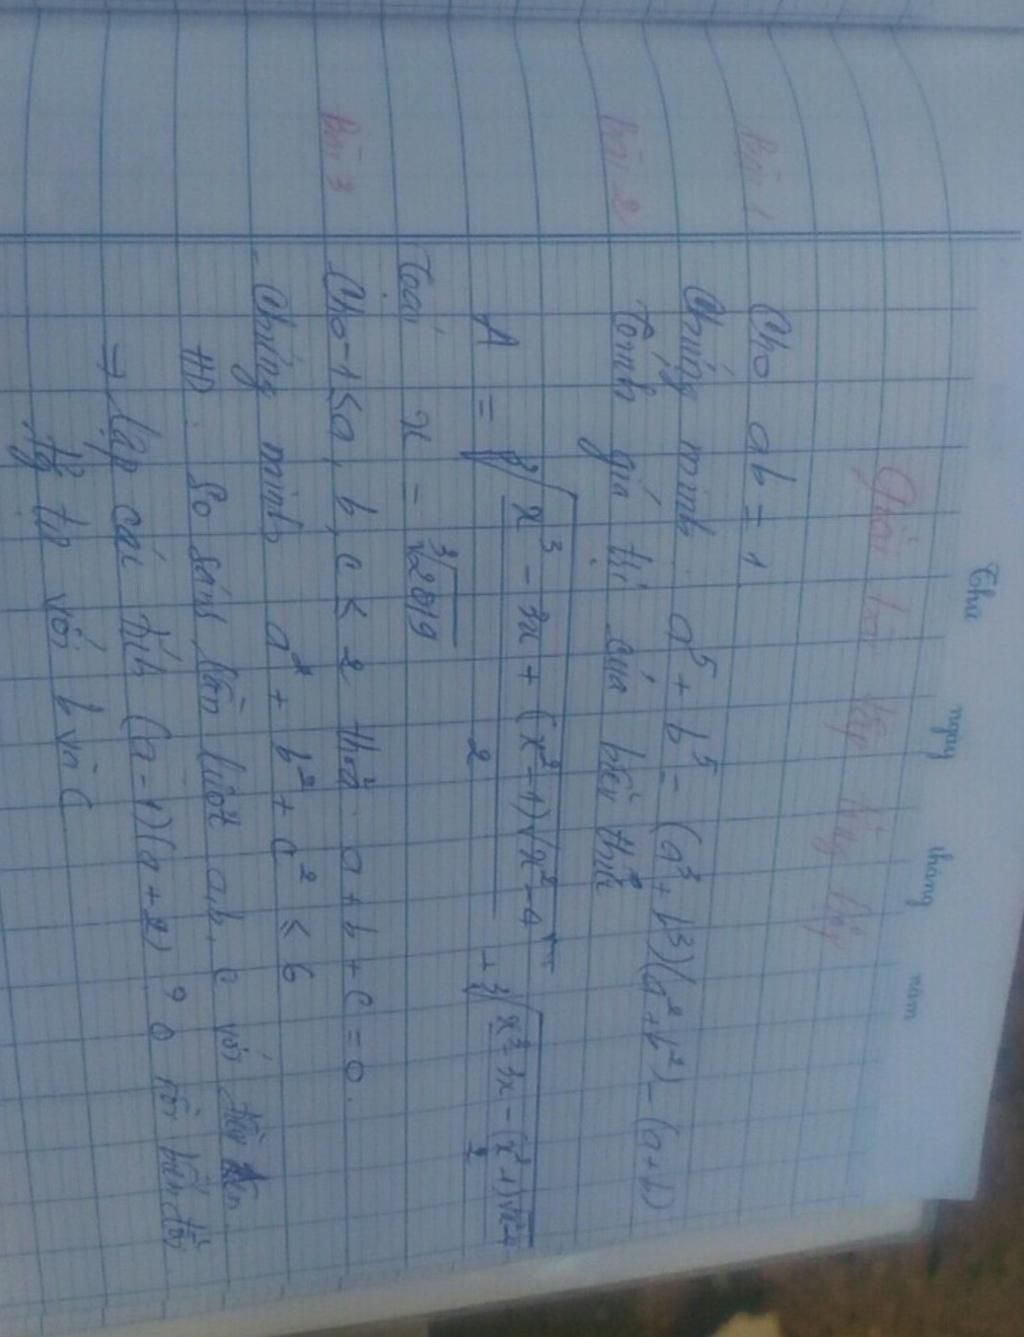 Thứ ngày tháng năm
Bài 1 Cho ab = 1
Chứng minh: a⁵ + b⁵ = (a³ + b³)(a² + b²) - (a+b)
Bài 2 Tính giá trị của biểu thức
A = ∛((x³ - 3x + (x² - 1)√(x² - 4))/2) + ∛((x³ - 3x - (x² - 1)√(x² - 4))/2)
Tại x = ∛2019
Bài 3 Cho -1 ≤ a, b, c ≤ 2 thoả: a + b + c = 0.
Chứng minh a² + b² + c² ≤ 6
HD: So sánh lần lượt a, b, c với
⇒ lập các tích (a - 1)(a + 2) ? 0 rồi biến đổi
tg tự với b và c